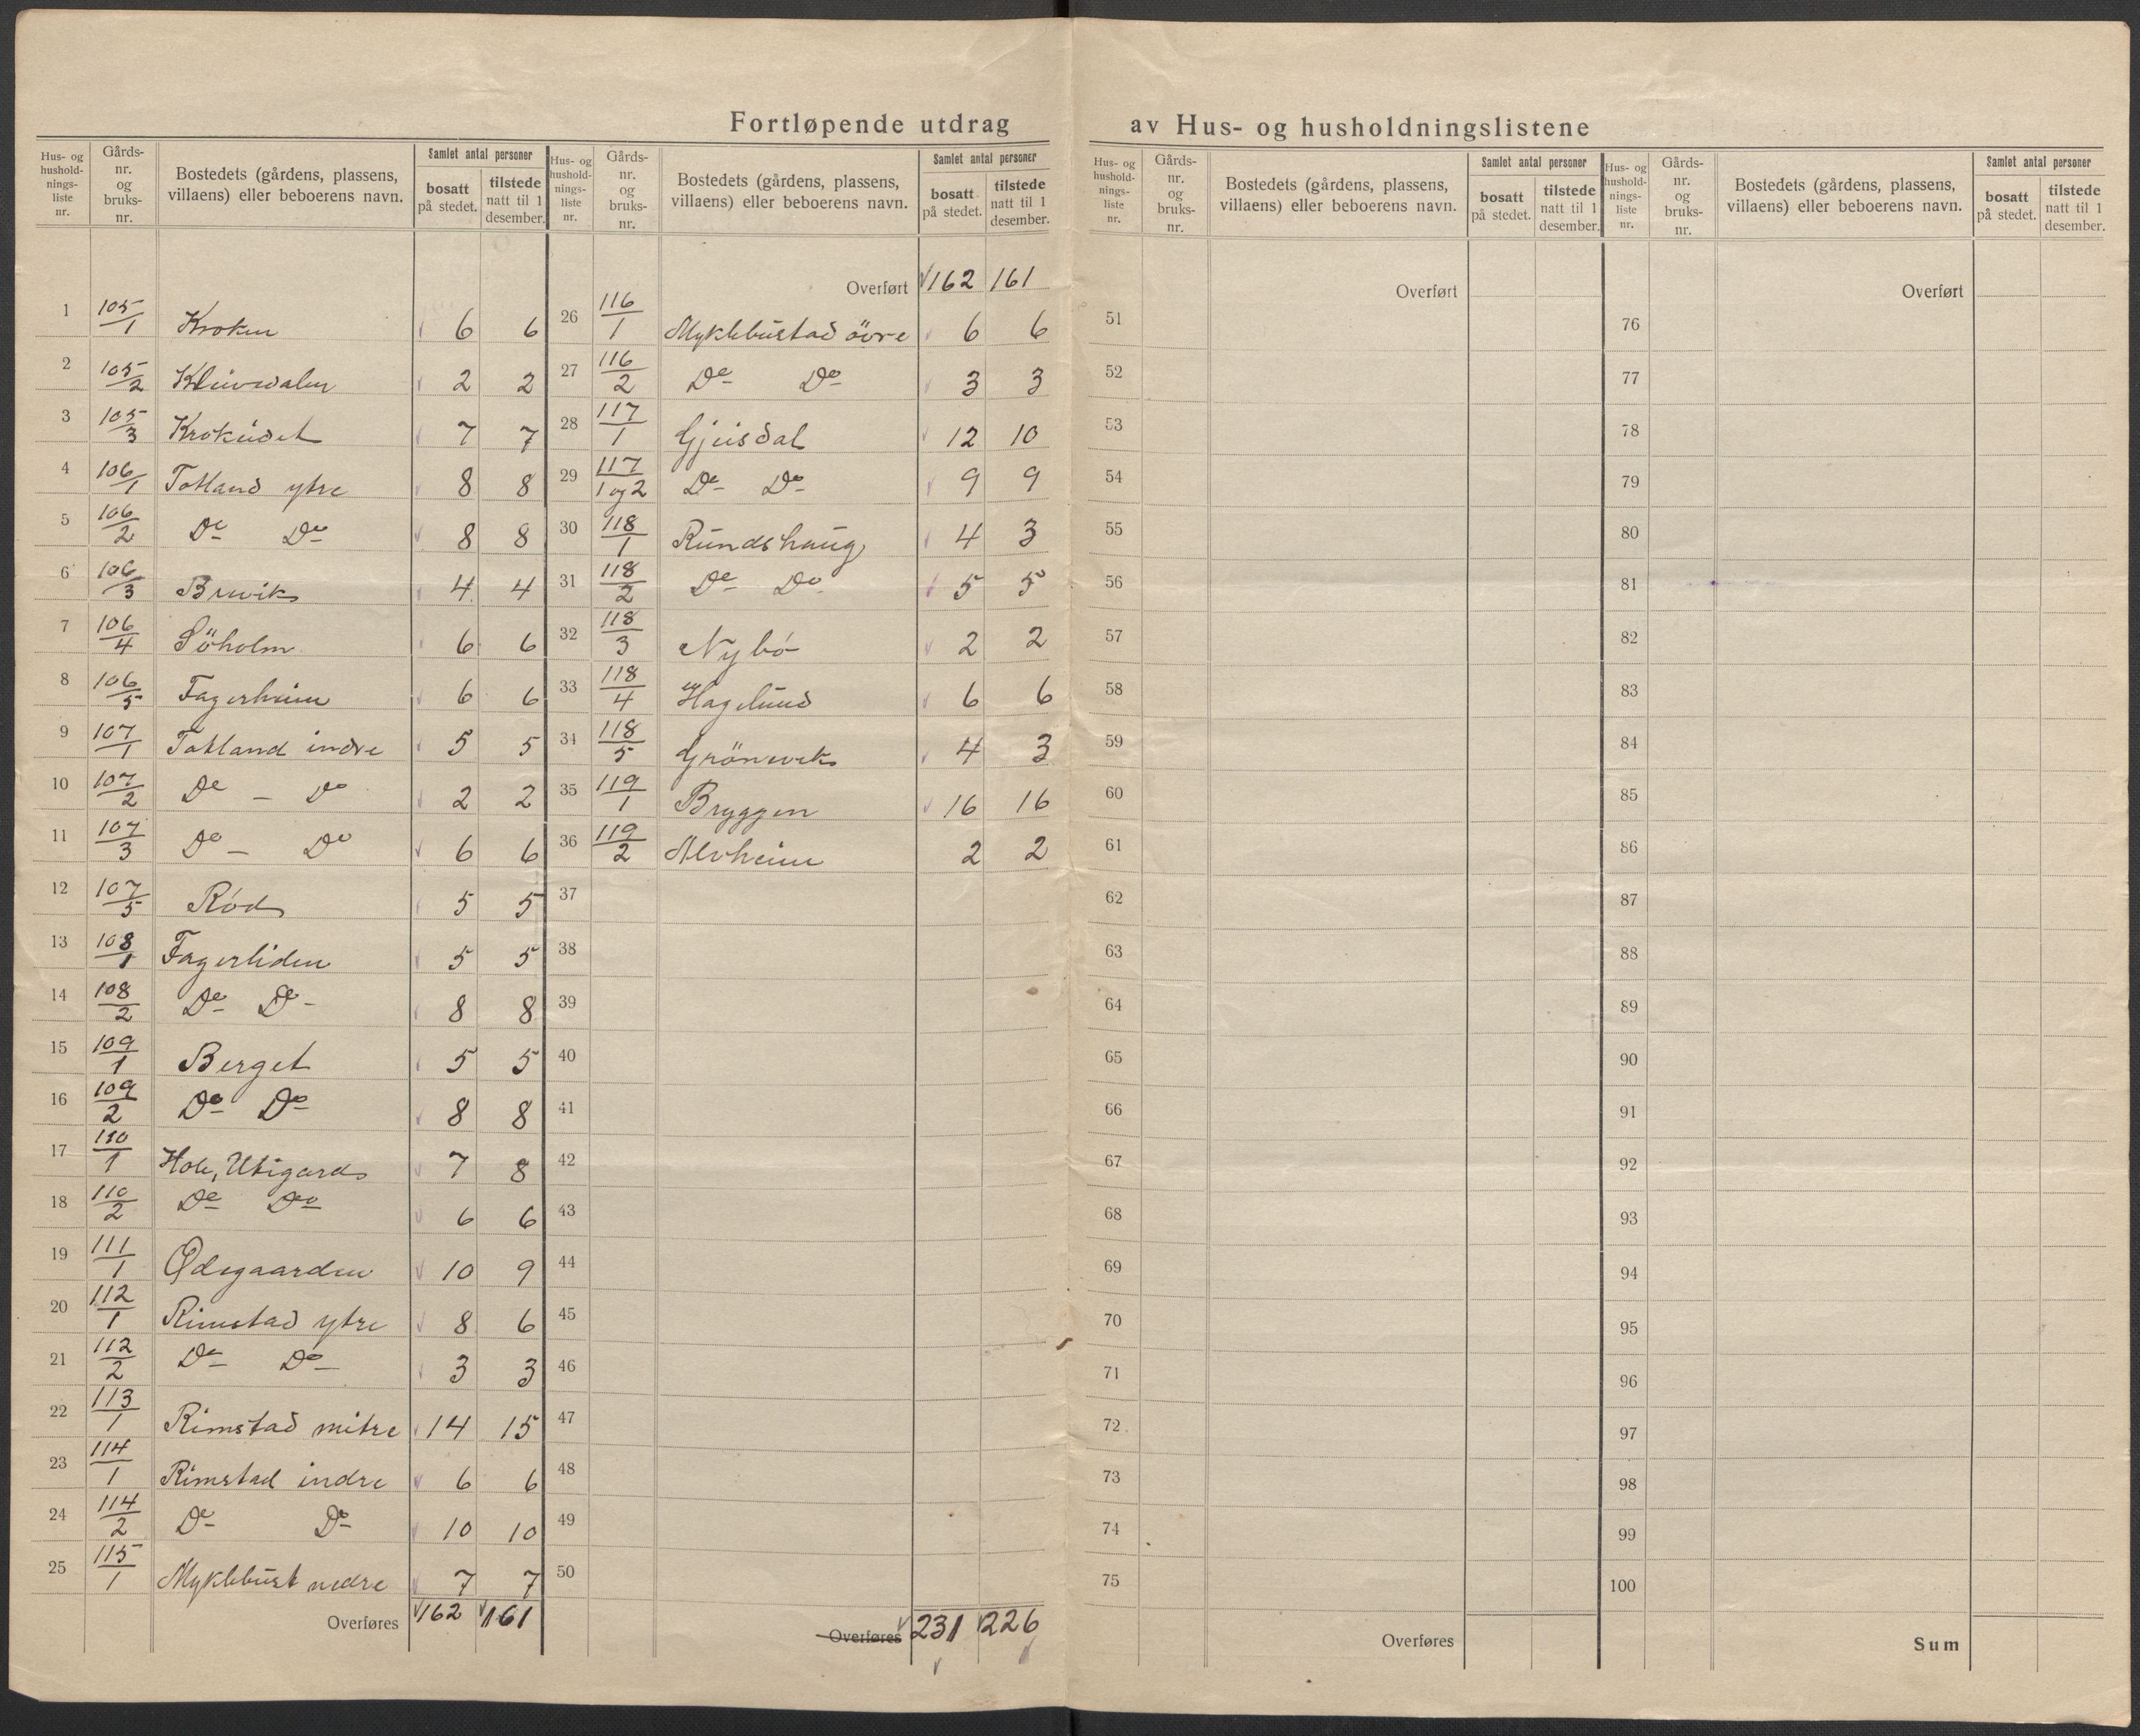 Fortløpende utdrag av Hus- og husholdningslistene
Hus- og hushold-nings-liste nr. Gårds-nr. og bruks-nr. Bostedets (gårdens, plassens, villaens) eller beboerens navn. Samlet antal personer bosatt på stedet. tilstede natt til 1 desember.
1 105/1 Kroken 6 6
2 105/2 Kleivedalen 2 2
3 105/3 Krokeidet 7 7
4 106/1 Totland ytre 8 8
5 106/2 Do Do 8 8
6 106/3 Breivik 4 4
7 106/4 Söholm 6 6
8 106/5 Fagerheim 6 6
9 107/1 Totland indre 5 5
10 107/2 Do - Do 2 2
11 107/3 Do - Do 6 6
12 107/5 Rød 5 5
13 108/1 Fagerliden 5 5
14 108/2 Do Do 8 8
15 109/1 Berget 5 5
16 109/2 Do Do 8 8
17 110/1 Hole, Utigard 7 8
18 110/2 Do Do 6 6
19 111/1 Ødegaarden 10 9
20 112/1 Rimstad ytre 8 6
21 112/2 Do Do 3 3
22 113/1 Rimstad mitre 14 15
23 114/1 Rimstad indre 6 6
24 114/2 Do Do 10 10
25 115/1 Myklebust nedre 7 7
Overføres 162 161
Hus- og hushold-nings-liste nr. Gårds-nr. og bruks-nr. Bostedets (gårdens, plassens, villaens) eller beboerens navn. Samlet antal personer bosatt på stedet. tilstede natt til 1 desember.
Overført 162 161
26 116/1 Myklebustad övre 6 6
27 116/2 Do Do 3 3
28 117/1 Gjeisdal 12 10
29 117/1 og 2 Do Do 9 9
30 118/1 Rundshaug 4 3
31 118/2 Do Do 5 5
32 118/3 Nybö 2 2
33 118/4 Hagelund 6 6
34 118/5 Grönevik 4 3
35 119/1 Bryggen 16 16
36 119/2 Alvheim 2 2
37
38
39
40
41
42
43
44
45
46
47
48
49
50
Overføres 231 226
Hus- og hushold-nings-liste nr. Gårds-nr. og bruks-nr. Bostedets (gårdens, plassens, villaens) eller beboerens navn. Samlet antal personer bosatt på stedet. tilstede natt til 1 desember.
Overført
51
52
53
54
55
56
57
58
59
60
61
62
63
64
65
66
67
68
69
70
71
72
73
74
75
Overføres
Hus- og hushold-nings-liste nr. Gårds-nr. og bruks-nr. Bostedets (gårdens, plassens, villaens) eller beboerens navn. Samlet antal personer bosatt på stedet. tilstede natt til 1 desember.
Overført
76
77
78
79
80
81
82
83
84
85
86
87
88
89
90
91
92
93
94
95
96
97
98
99
100
Sum